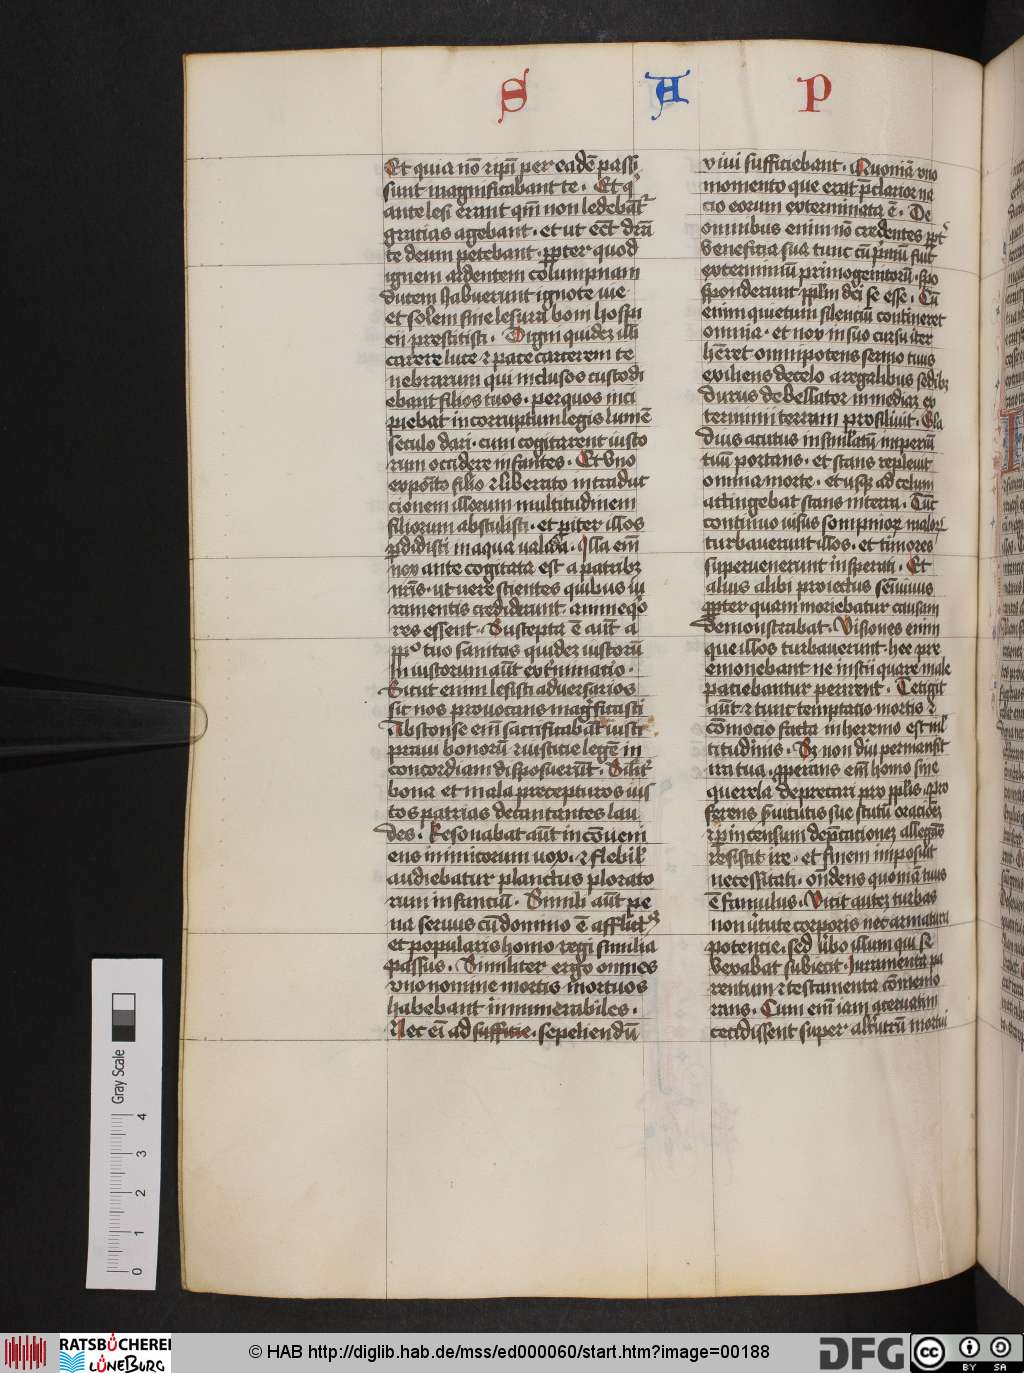 S A P
Et quia nō ⁊ ipī per eadē passi
sunt magnificabant te . Et qͥ
ante lesi erant qm̄ non ledebātᷣ
gratias agebant . et ut eēt drā
te deum petebant . ꝓpter quod
ignem ardentem columpnam
ducem habuerunt ignote vie
et solem sine lesura boni hospi
cii prestitisti . Digni quideꝫ illi
carere luce ⁊ pate carcerem te
nebrarum qui inclusos custodi
ebant filios tuos . per quos inci
piebat incorruptum legis lumē
seculo dari . cum cogitarent iusto
rum occidere infantes . Et vno
exposito filio ⁊ liberato in traduc
cionem illorum multitudinem
filiorum abstulisti . et pariter illos
ꝑdidisti in aqua valida . Illa em̄
nox ante cogitata est a patribꝫ
nr̄is . ut vere scientes quibus iu
ramentis crediderunt animeqͦ
res essent . Suscepta ē aūt a
ppl̄o tuo sanitas quideꝫ iustorū
In iustorum aūt exterminatio .
Sicut enim lesisti adversarios
sic nos provocans magficasti
Absconse em̄ sacrificabāt iusti
pueri bonorū ⁊ iusticie legē in
concordiam disposuerūt . Silitᷣ
bona et mala precepturos ius
tos patrias decantantes lau
des . Resonabat aūt in cōveni
ens inimicorum vox . ⁊ flebil̕
audiebatur planctus plorato
rum infanciū . Simili aūt pe
na servus cū domino ē afflictꝰ
et popularis homo regi similia
passus . Similiter ergo omnes
vno nomine mortis mortuos
habebant innumerabiles .
Nec ei̅ ad suffitie . sepeliendū
vivi sufficiebant . Quoniā vno
momento que erat p̄clarior na
cio eorum exterminata ē . De
omnibus enim nō credentes ꝓptᷣ
beneficia sua tunc cū primū fuit
exterminiū primogenitorū . spo
sponderunt ppl̄m dei se esse . Cū
enim quietum silenciū contineret
omnia . et nox in suo cursu iter
hēret omnipotens sermo tuus
exiliens de celo a regalibus sedibꝫ
durus debellator in mediaꝫ ex
terminii terram prosilivit . Gla
dius acutus insimulatū imperiū
tuū portans . et stans replevit
omnia morte . et usqꝫ ad celum
attingebat stans in terra . Tūc
continuo visus sompnioꝝ maloꝝ
turbaverunt illos . et timores
supervenerunt insperati . Et
alius alibi proiectus semivivus
ꝓpter quam moriebatur causam
demonstrabat . Visiones enim
que illos turbaverunt . hec pre
emonebant ne inscii quare male
paciebantur perirent . Tetigit
aūt ⁊ tunc temptatio mortis ⁊
cōmocio facta in heremo est ml̕
titudinis . Sꝫ non diu permansit
ira tua . ꝓperans em̄ homo sine
querela deprecari pro ppl̄is . pro
ferens ẜvitutis sue scutū oracioneꝫ
⁊ ꝑ incensum dep̄cationeꝫ allegās
resistit ire . et finem imposuit
necessitati . ondens quoniā tuus
ē famulus . Vicit auteꝫ turbas
non v̄tute corporis nec armatura
potencie . sed v̄bo illum qui se
vexabat subiecit . Iuramenta pa
rentum ⁊ testamenta cōmemo
rans . Cum em̄ iam acervatim
cecidissent super alt̕utrū mortui
Gray Scale
0 1 2 3 4
RATSBÜCHEREI
LÜNEBURG
© HAB http://diglib.hab.de/mss/ed000060/start.htm?image=00188
DFG
cc BY SA